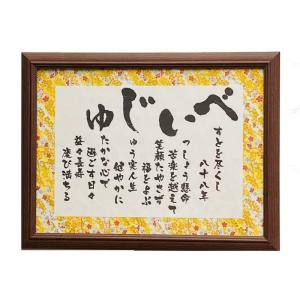 べいじゅ
すとを尽くし
八十八年
っしょう懸命
苦楽を越えて
笑顔たやさず
福をよぶ
ゆう実人生
健やかに
たかな心で
過ごす日々
益々長寿
慶び満ちる